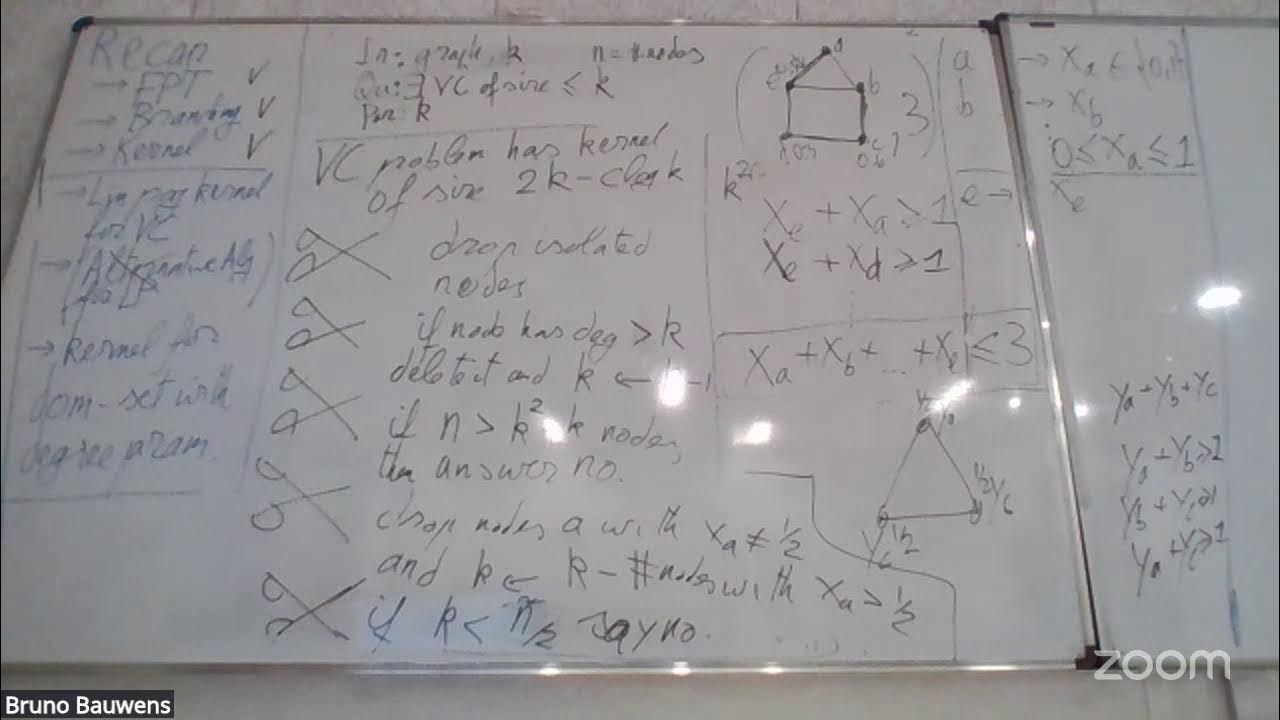 Recap
→ FPT ✓
→ Branching ✓
→ Kernel ✓
→ kernel
for VC
→ (Alternative Alg
for LP)
→ kernel for
dom-set with
degree param.
In: graph, k n = # nodes
Qu: ∃ VC of size ≤ k
Par: k
VC problem has kernel
of size 2k
drop isolated
nodes
if node has deg > k
delete it and k ← k-1
if n > k² k nodes,
then answer no.
drop nodes a with x_a ≠ 1/2
and k ← k - # nodes with x_a > 1/2
if k < n/2 say no.
a
b
c
3
x_e + x_a ≥ 1
x_e + x_d ≥ 1
⋮
x_a + x_b + ... + x_e ≤ 3
1/2
1/2 y_c
1/2
a
b
e →
→ x_a ∈
→ x_b
⋮
0 ≤ x_a ≤ 1
x_e
y_a + y_b + y_c
y_a + y_b ≥ 1
y_b + y_c ≥ 1
y_a + y_c ≥ 1
zoom
Bruno Bauwens